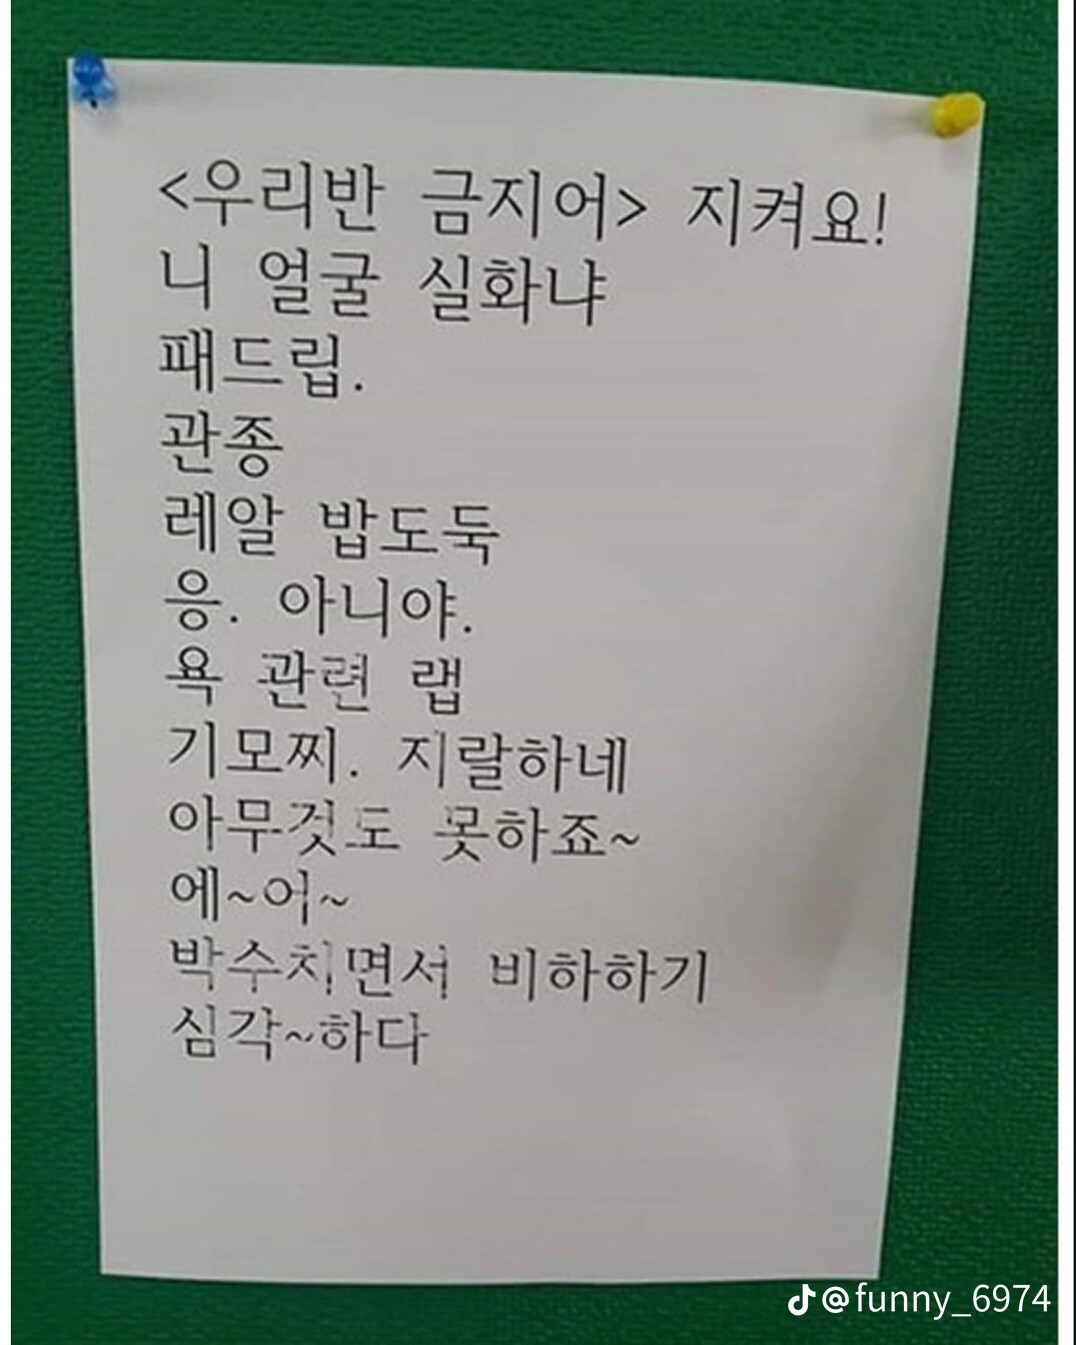 <우리반 금지어> 지켜요!
니 얼굴 실화냐
패드립.
관종
레알 밥도둑
응. 아니야.
욕 관련 랩
기모찌. 지랄하네
아무것도 못하죠~
에~어~
박수치면서 비하하기
심각~하다
@funny_6974